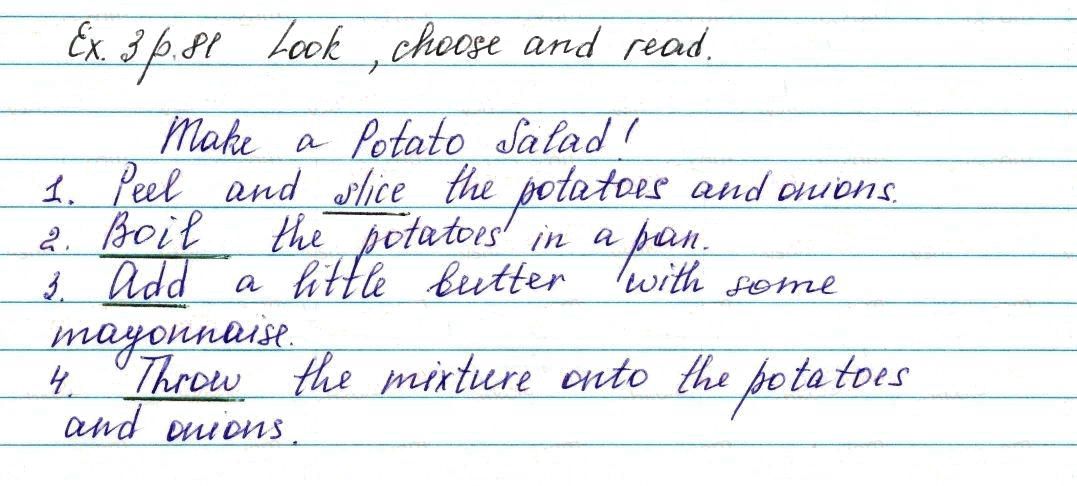 Ex. 3 p. 81 Look, choose and read.
Make a Potato Salad!
1. Peel and slice the potatoes and onions.
2. Boil the potatoes in a pan.
3. Add a little butter with some
mayonnaise.
4. Throw the mixture onto the potatoes
and onions.